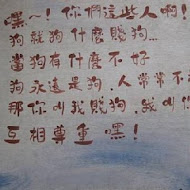 嘿~!你們這些人啊!
狗就狗什麼賤狗...
當狗有什麼不好
狗永遠是狗.人常常不
那你叫我賤狗.我叫你
互相尊重嘿!